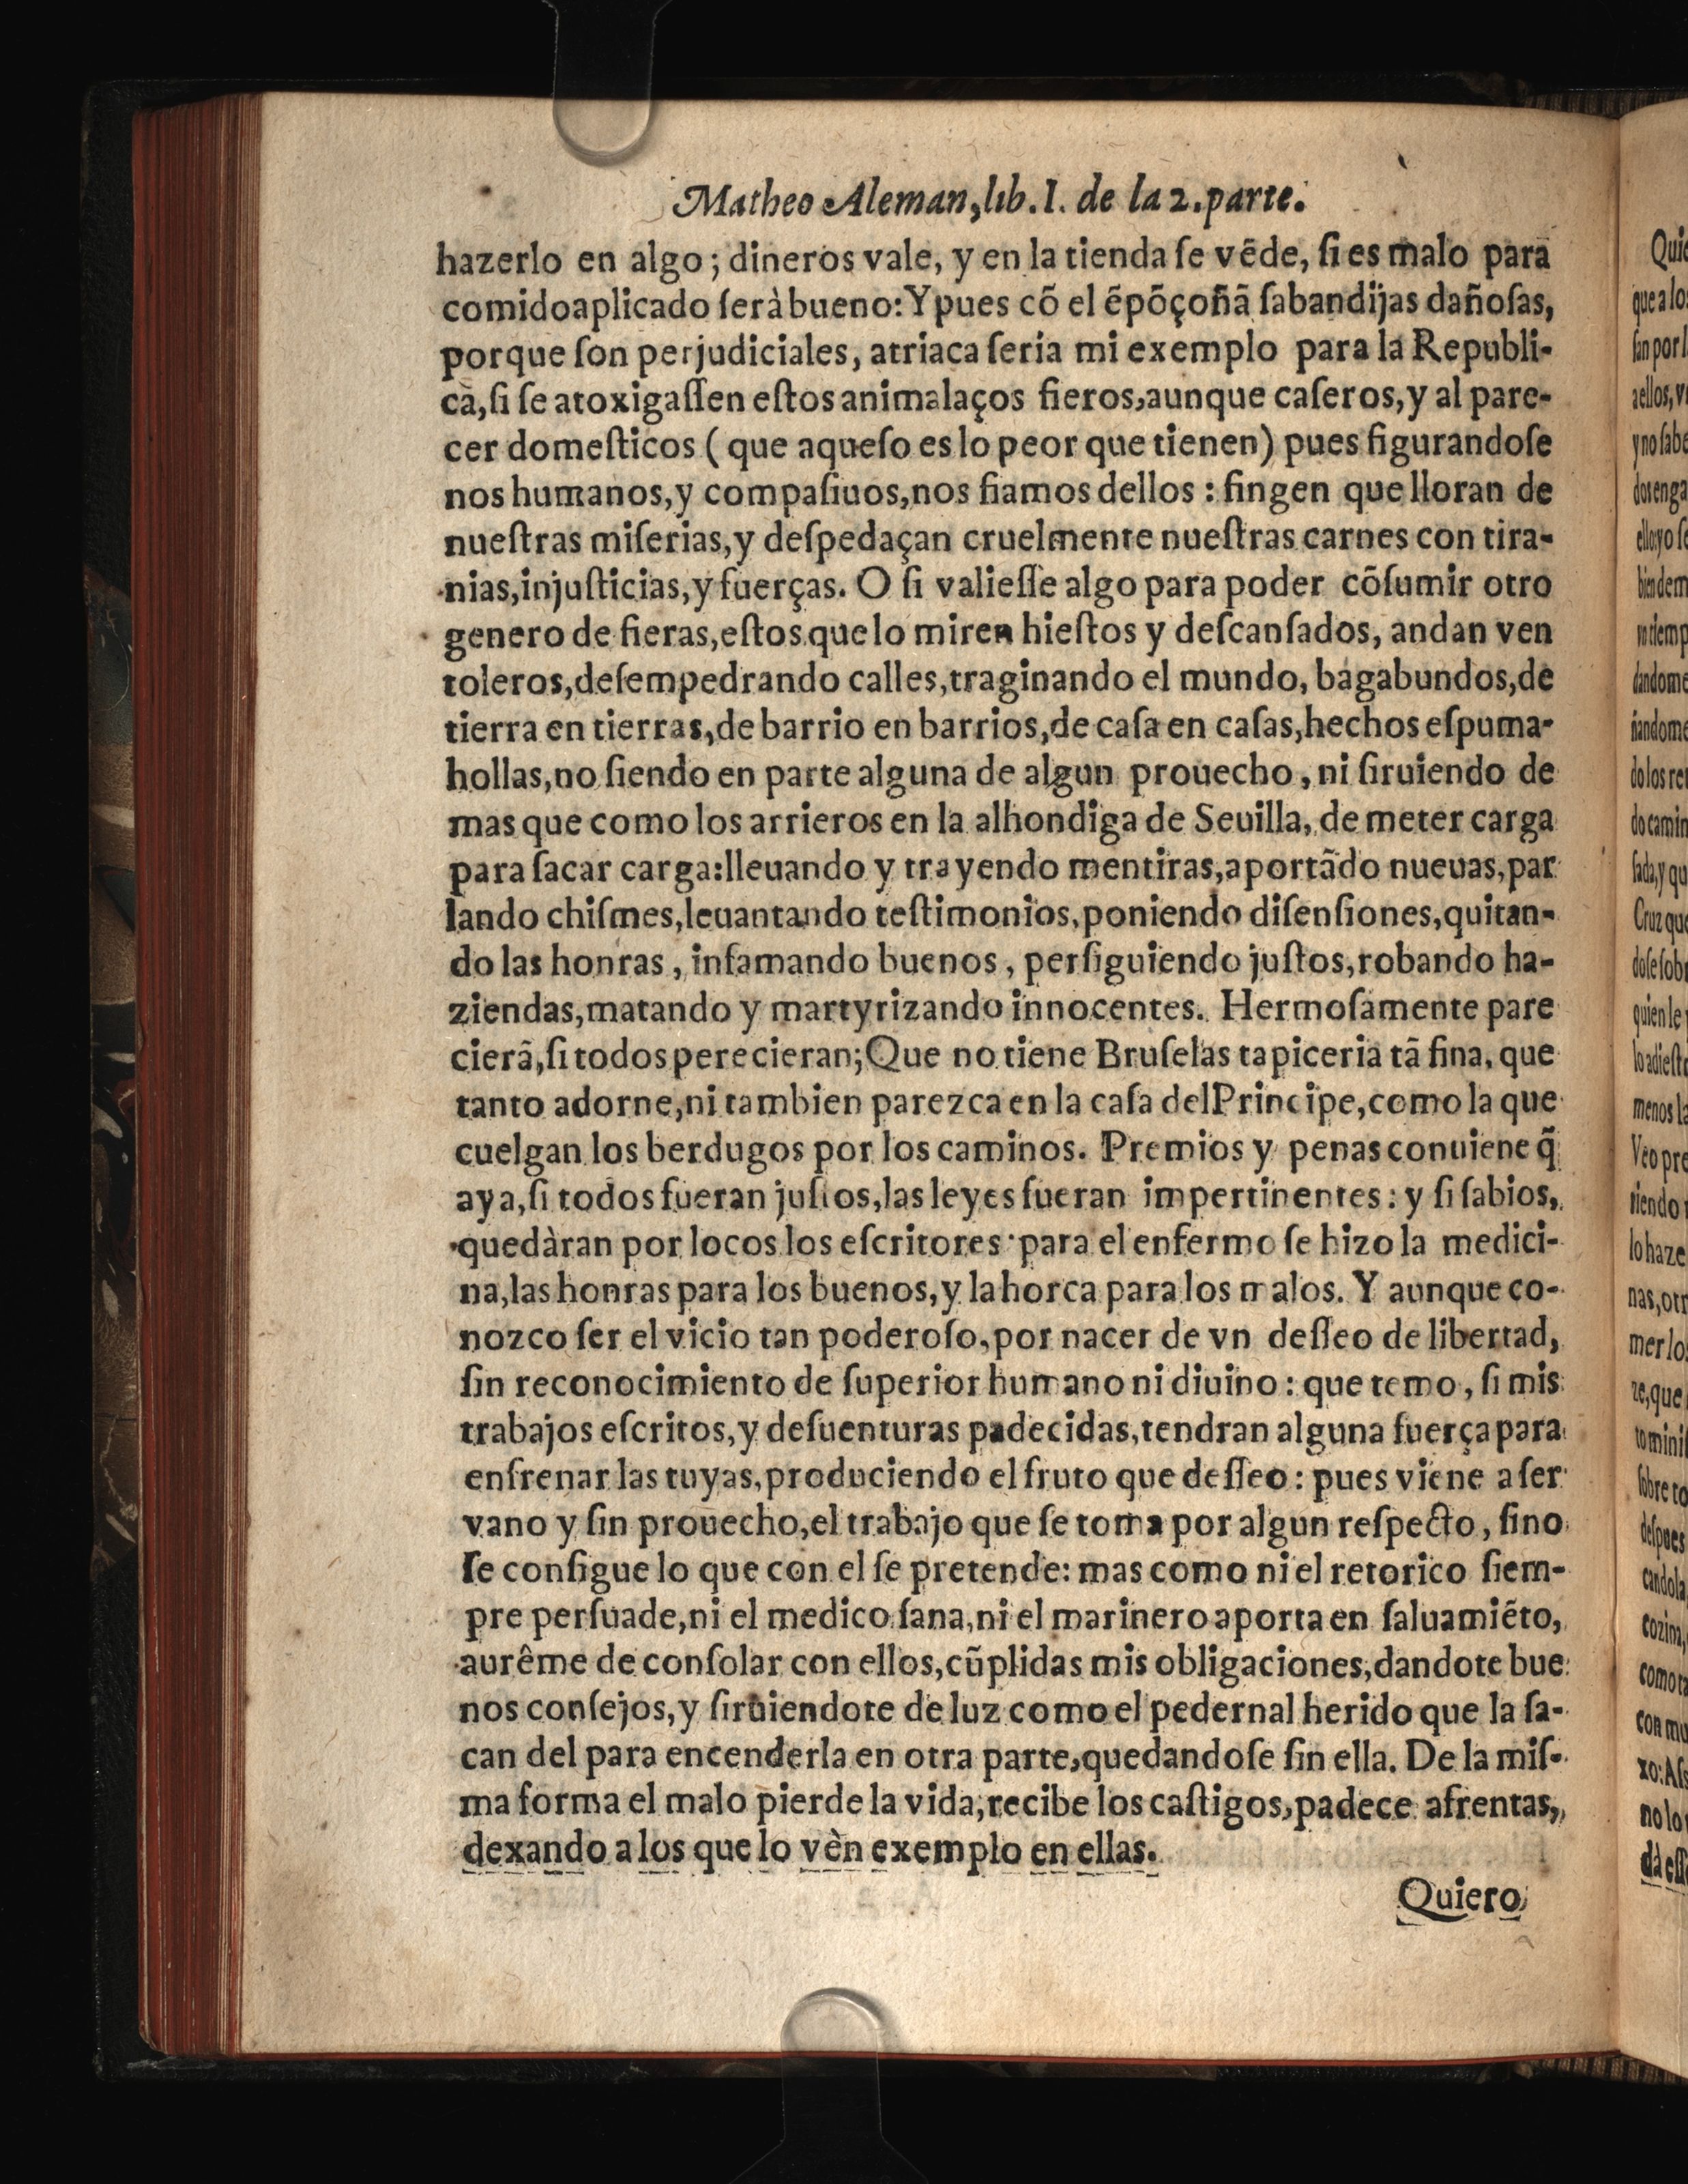 Matheo Aleman, lib. I. de la 2. parte.
hazerlo en algo; dineros vale, y en la tienda ſe vẽde, ſi es malo para
comido aplicado ſerà bueno: Y pues cõ el ẽpõçoñã ſabandijas dañoſas,
porque ſon perjudiciales, atriaca ſeria mi exemplo para la Republi-
ca, ſi ſe atoxigaſſen eſtos animalaços fieros, aunque caſeros, y al pare-
cer domeſticos (que aqueſo es lo peor que tienen) pues figurandoſe
nos humanos, y compaſiuos, nos fiamos dellos: fingen que lloran de
nueſtras miſerias, y deſpedaçan cruelmente nueſtras carnes con tira-
nias, injuſticias, y fuerças. O ſi valieſſe algo para poder cõſumir otro
genero de fieras, eſtos que lo miren hieſtos y deſcanſados, andan ven
toleros, deſempedrando calles, traginando el mundo, bagabundos, de
tierra en tierras, de barrio en barrios, de caſa en caſas, hechos eſpuma-
hollas, no ſiendo en parte alguna de algun prouecho, ni ſiruiendo de
mas que como los arrieros en la alhondiga de Seuilla, de meter carga
para ſacar carga: lleuando y trayendo mentiras, aportãdo nueuas, par
lando chiſmes, leuantando teſtimonios, poniendo diſenſiones, quitan-
do las honras, infamando buenos, perſiguiendo juſtos, robando ha-
ziendas, matando y martyrizando innocentes. Hermoſamente pare
cierã, ſi todos perecieran; Que no tiene Bruſelas tapiceria tã fina, que
tanto adorne, ni tambien parezca en la caſa del Principe, como la que
cuelgan los berdugos por los caminos. Premios y penas conuiene q̃
aya, ſi todos fueran juſtos, las leyes fueran impertinentes: y ſi ſabios,
quedàran por locos los eſcritores· para el enfermo ſe hizo la medici-
na, las honras para los buenos, y la horca para los malos. Y aunque co-
nozco ſer el vicio tan poderoſo, por nacer de vn deſſeo de libertad,
ſin reconocimiento de ſuperior humano ni diuino: que temo, ſi mis
trabajos eſcritos, y deſuenturas padecidas, tendran alguna fuerça para
enfrenar las tuyas, produciendo el fruto que deſſeo: pues viene a ſer
vano y ſin prouecho, el trabajo que ſe toma por algun reſpecto, ſino
ſe conſigue lo que con el ſe pretende: mas como ni el retorico ſiem-
pre perſuade, ni el medico ſana, ni el marinero aporta en ſaluamiẽto,
aurême de conſolar con ellos, cũplidas mis obligaciones, dandote bue
nos conſejos, y ſiruiendote de luz como el pedernal herido que la ſa-
can del para encenderla en otra parte, quedandoſe ſin ella. De la miſ-
ma forma el malo pierde la vida, recibe los caſtigos, padece afrentas,
dexando a los que lo vèn exemplo en ellas.
Quiero